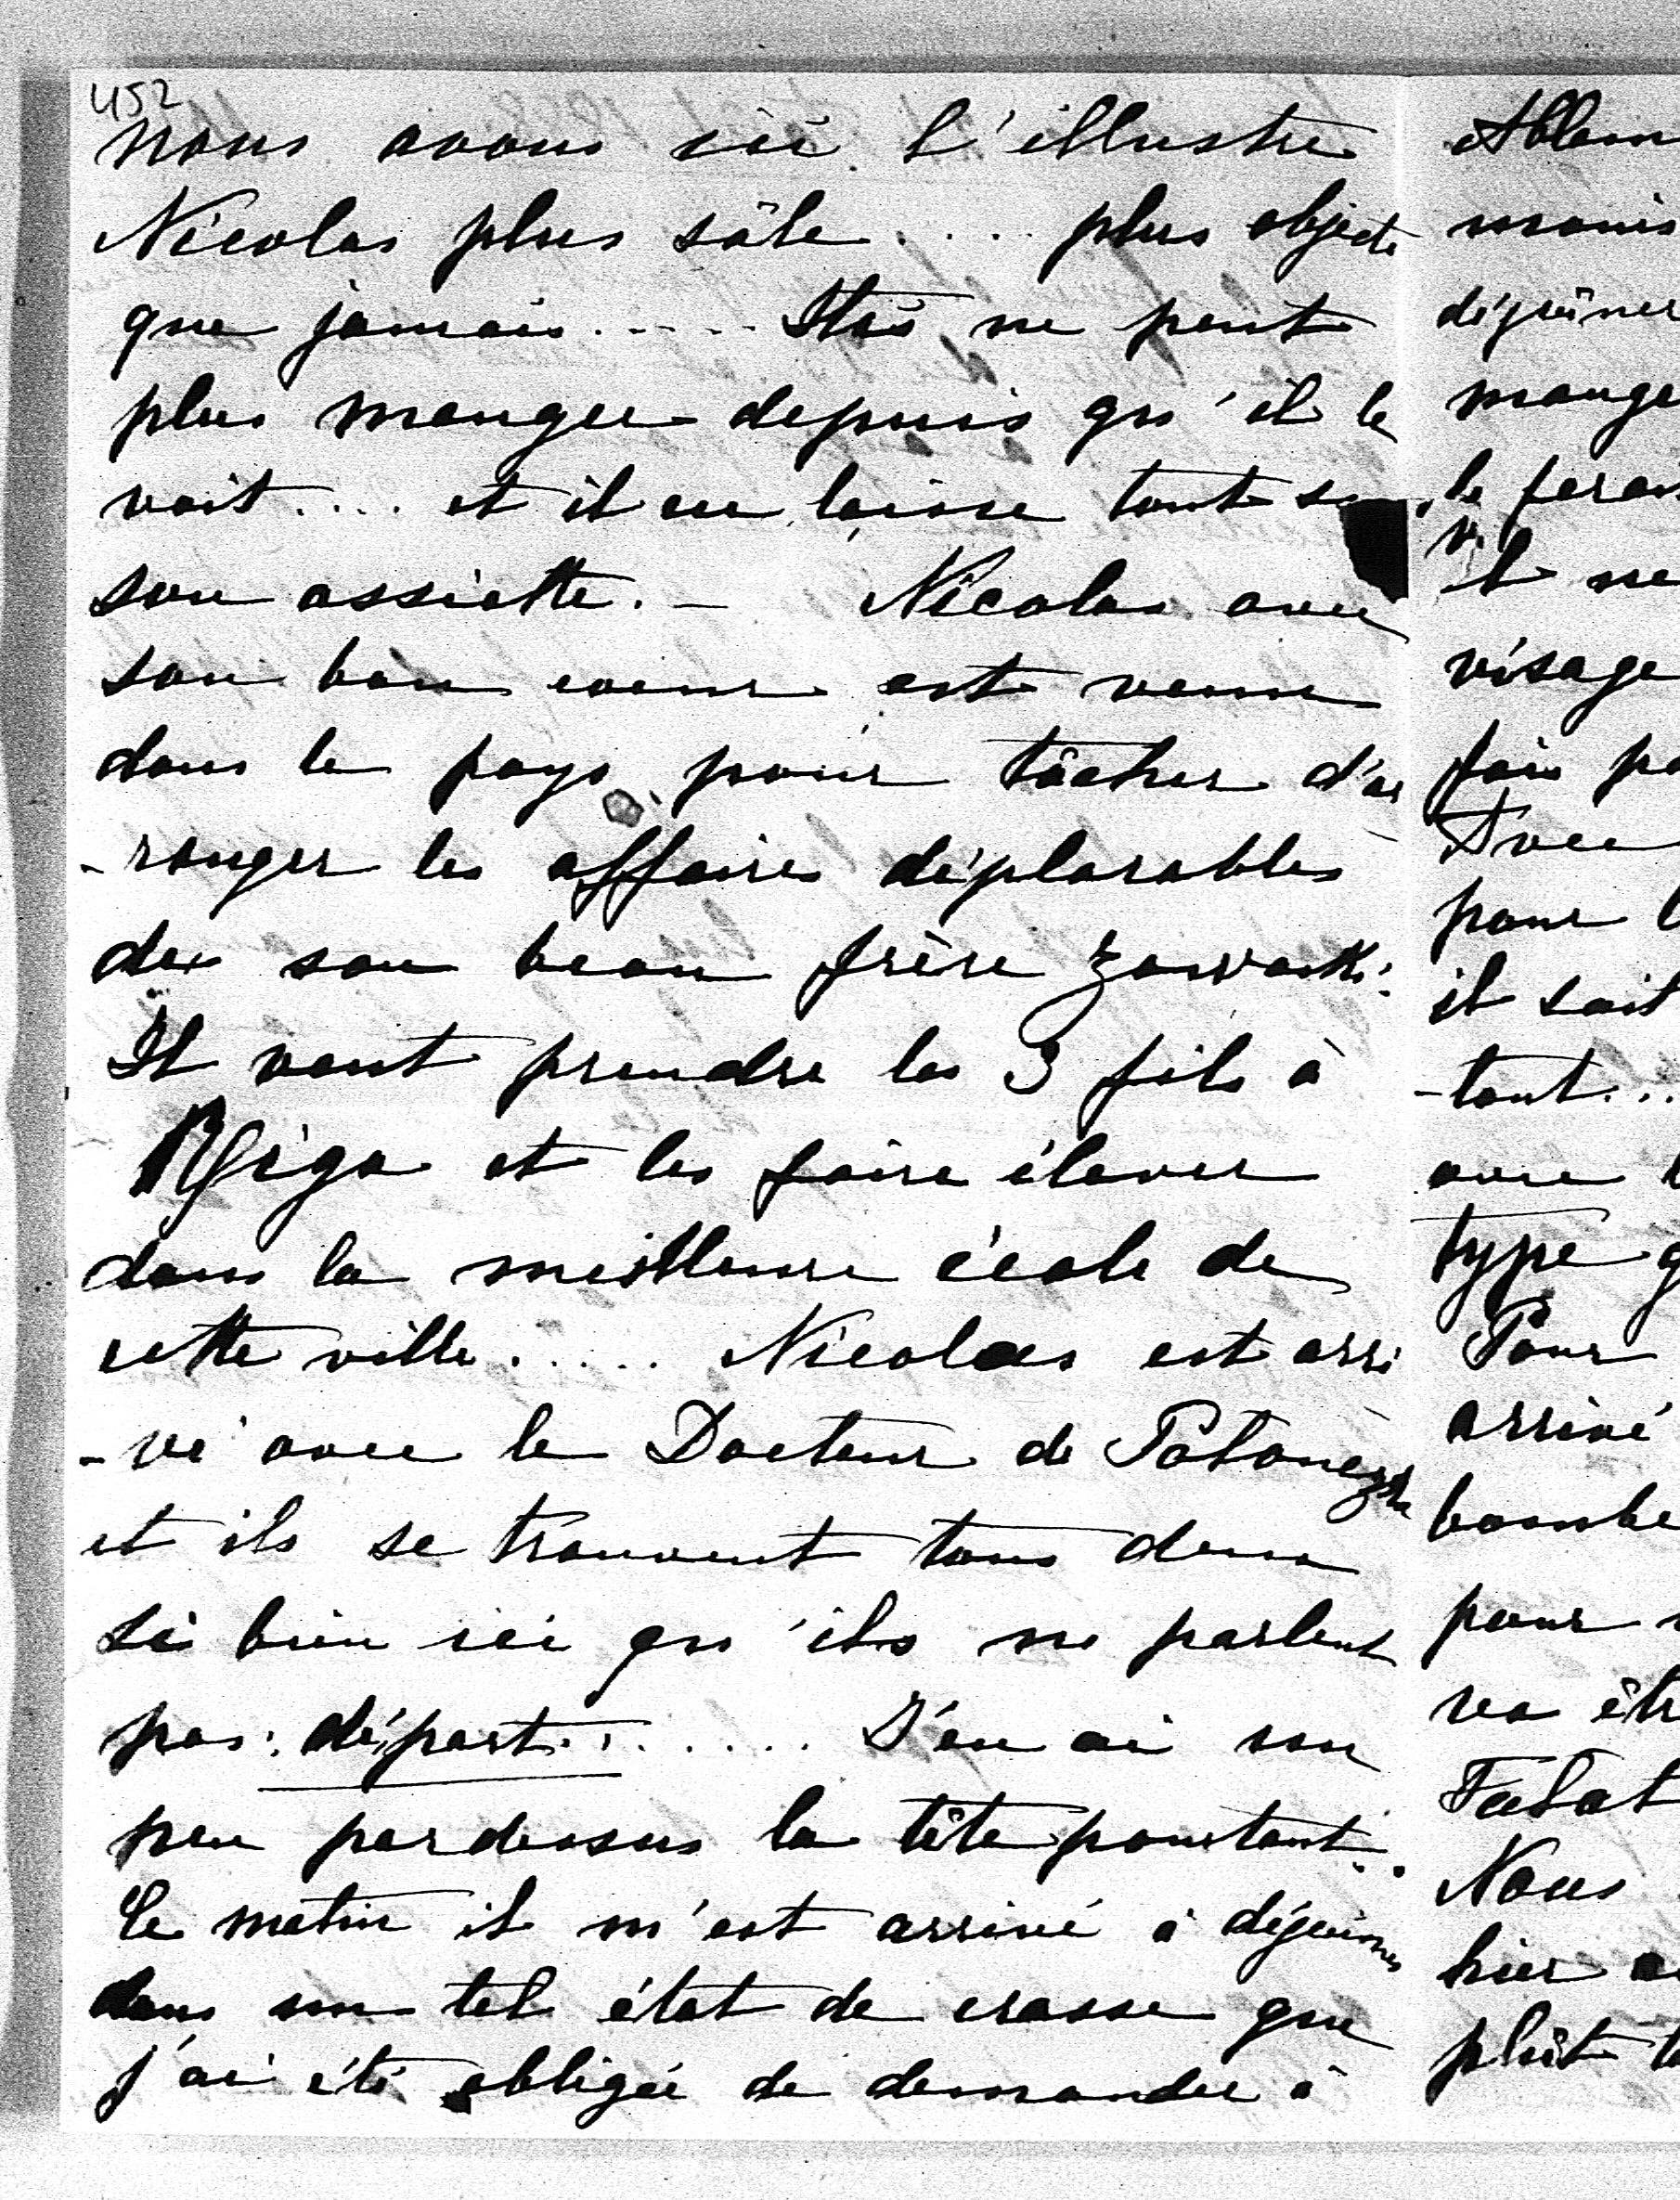 452
nous avons ici l'illustre
Nicolas plus sâle .... plus abjecte
que jamais ..... Stas ne peut
plus manger depuis qu'il le
voit .... et il en laisse tout
son assiette. — Nicolas avec
son bon coeur est venu
dans le pays pour tâcher d'ar
-ranger les affaires déplorables
de son beau frère Zawadzki.
Il veut prendre les 3 fils à
Riga et les faire élever
dans la meilleure école de
cette ville ..... Nicolas est arri
-vé avec le Docteur de
et ils se trouvent tous deux
si bien ici qu'ils ne parlent
pas: départ ....... J'en ai un
peu par dessus la tête pourtant.
Le matin il m'est arrivé à déjeûner
dans un tel état de crasse que
j'ai été obligée de demander à
manis
déjeûner
mange
le
il ne
visage
fais
Avec
pour
il sait
-tant...
avec
type
Pour
arrivé
bombe
pour
va
Falat
Nous
hier
plût